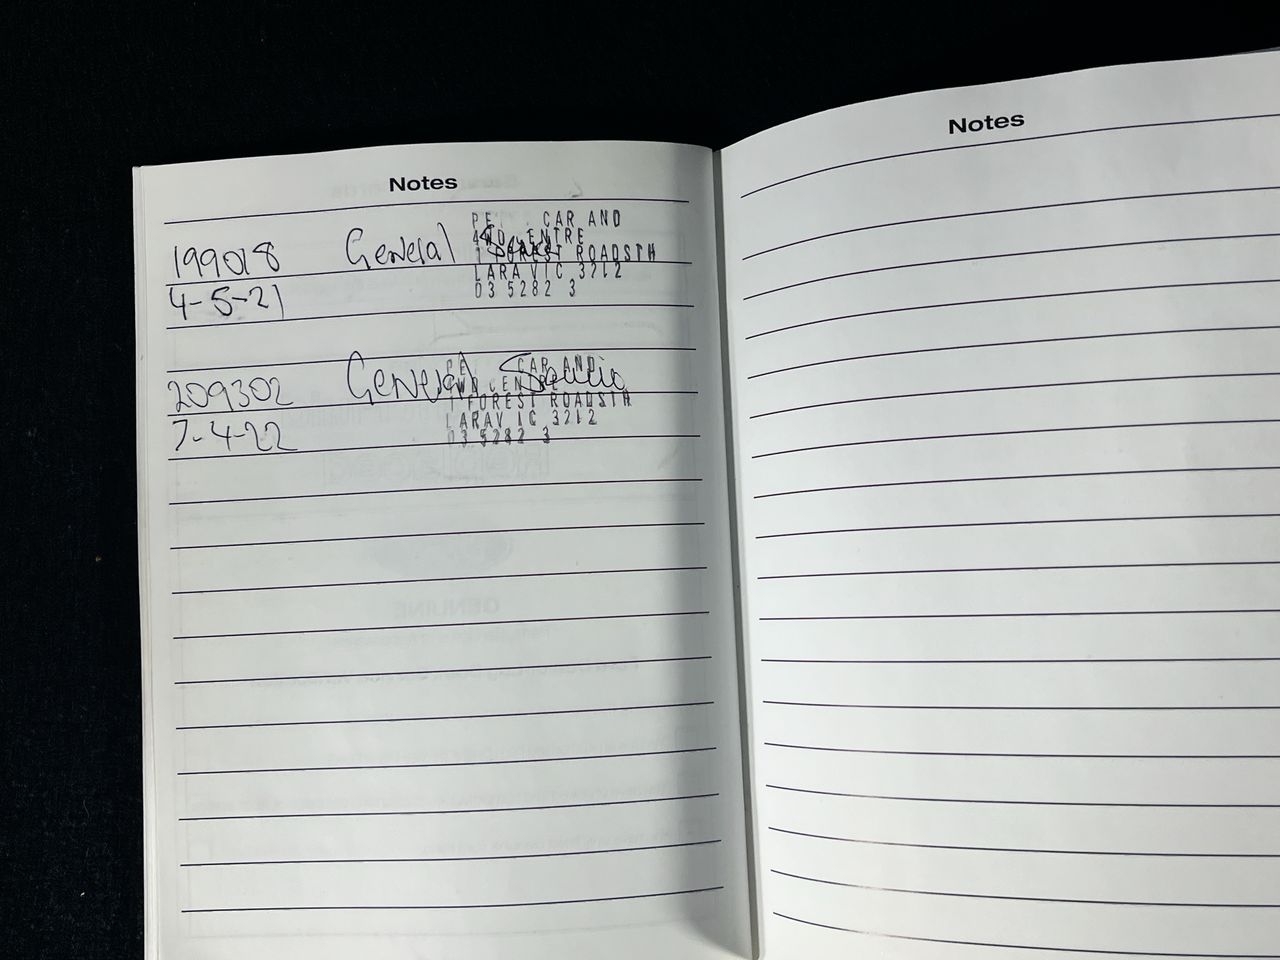 Notes
199018 General
PE CAR AND
4WD CENTRE
1 FOREST ROADSTH
LARA VIC 3212
4-5-21
03 5282 3
209302 General Service
PE CAR AND
4WD CENTRE
1 FOREST ROADSTH
LARA VIC 3212
7-4-22
03 5282 3
Notes